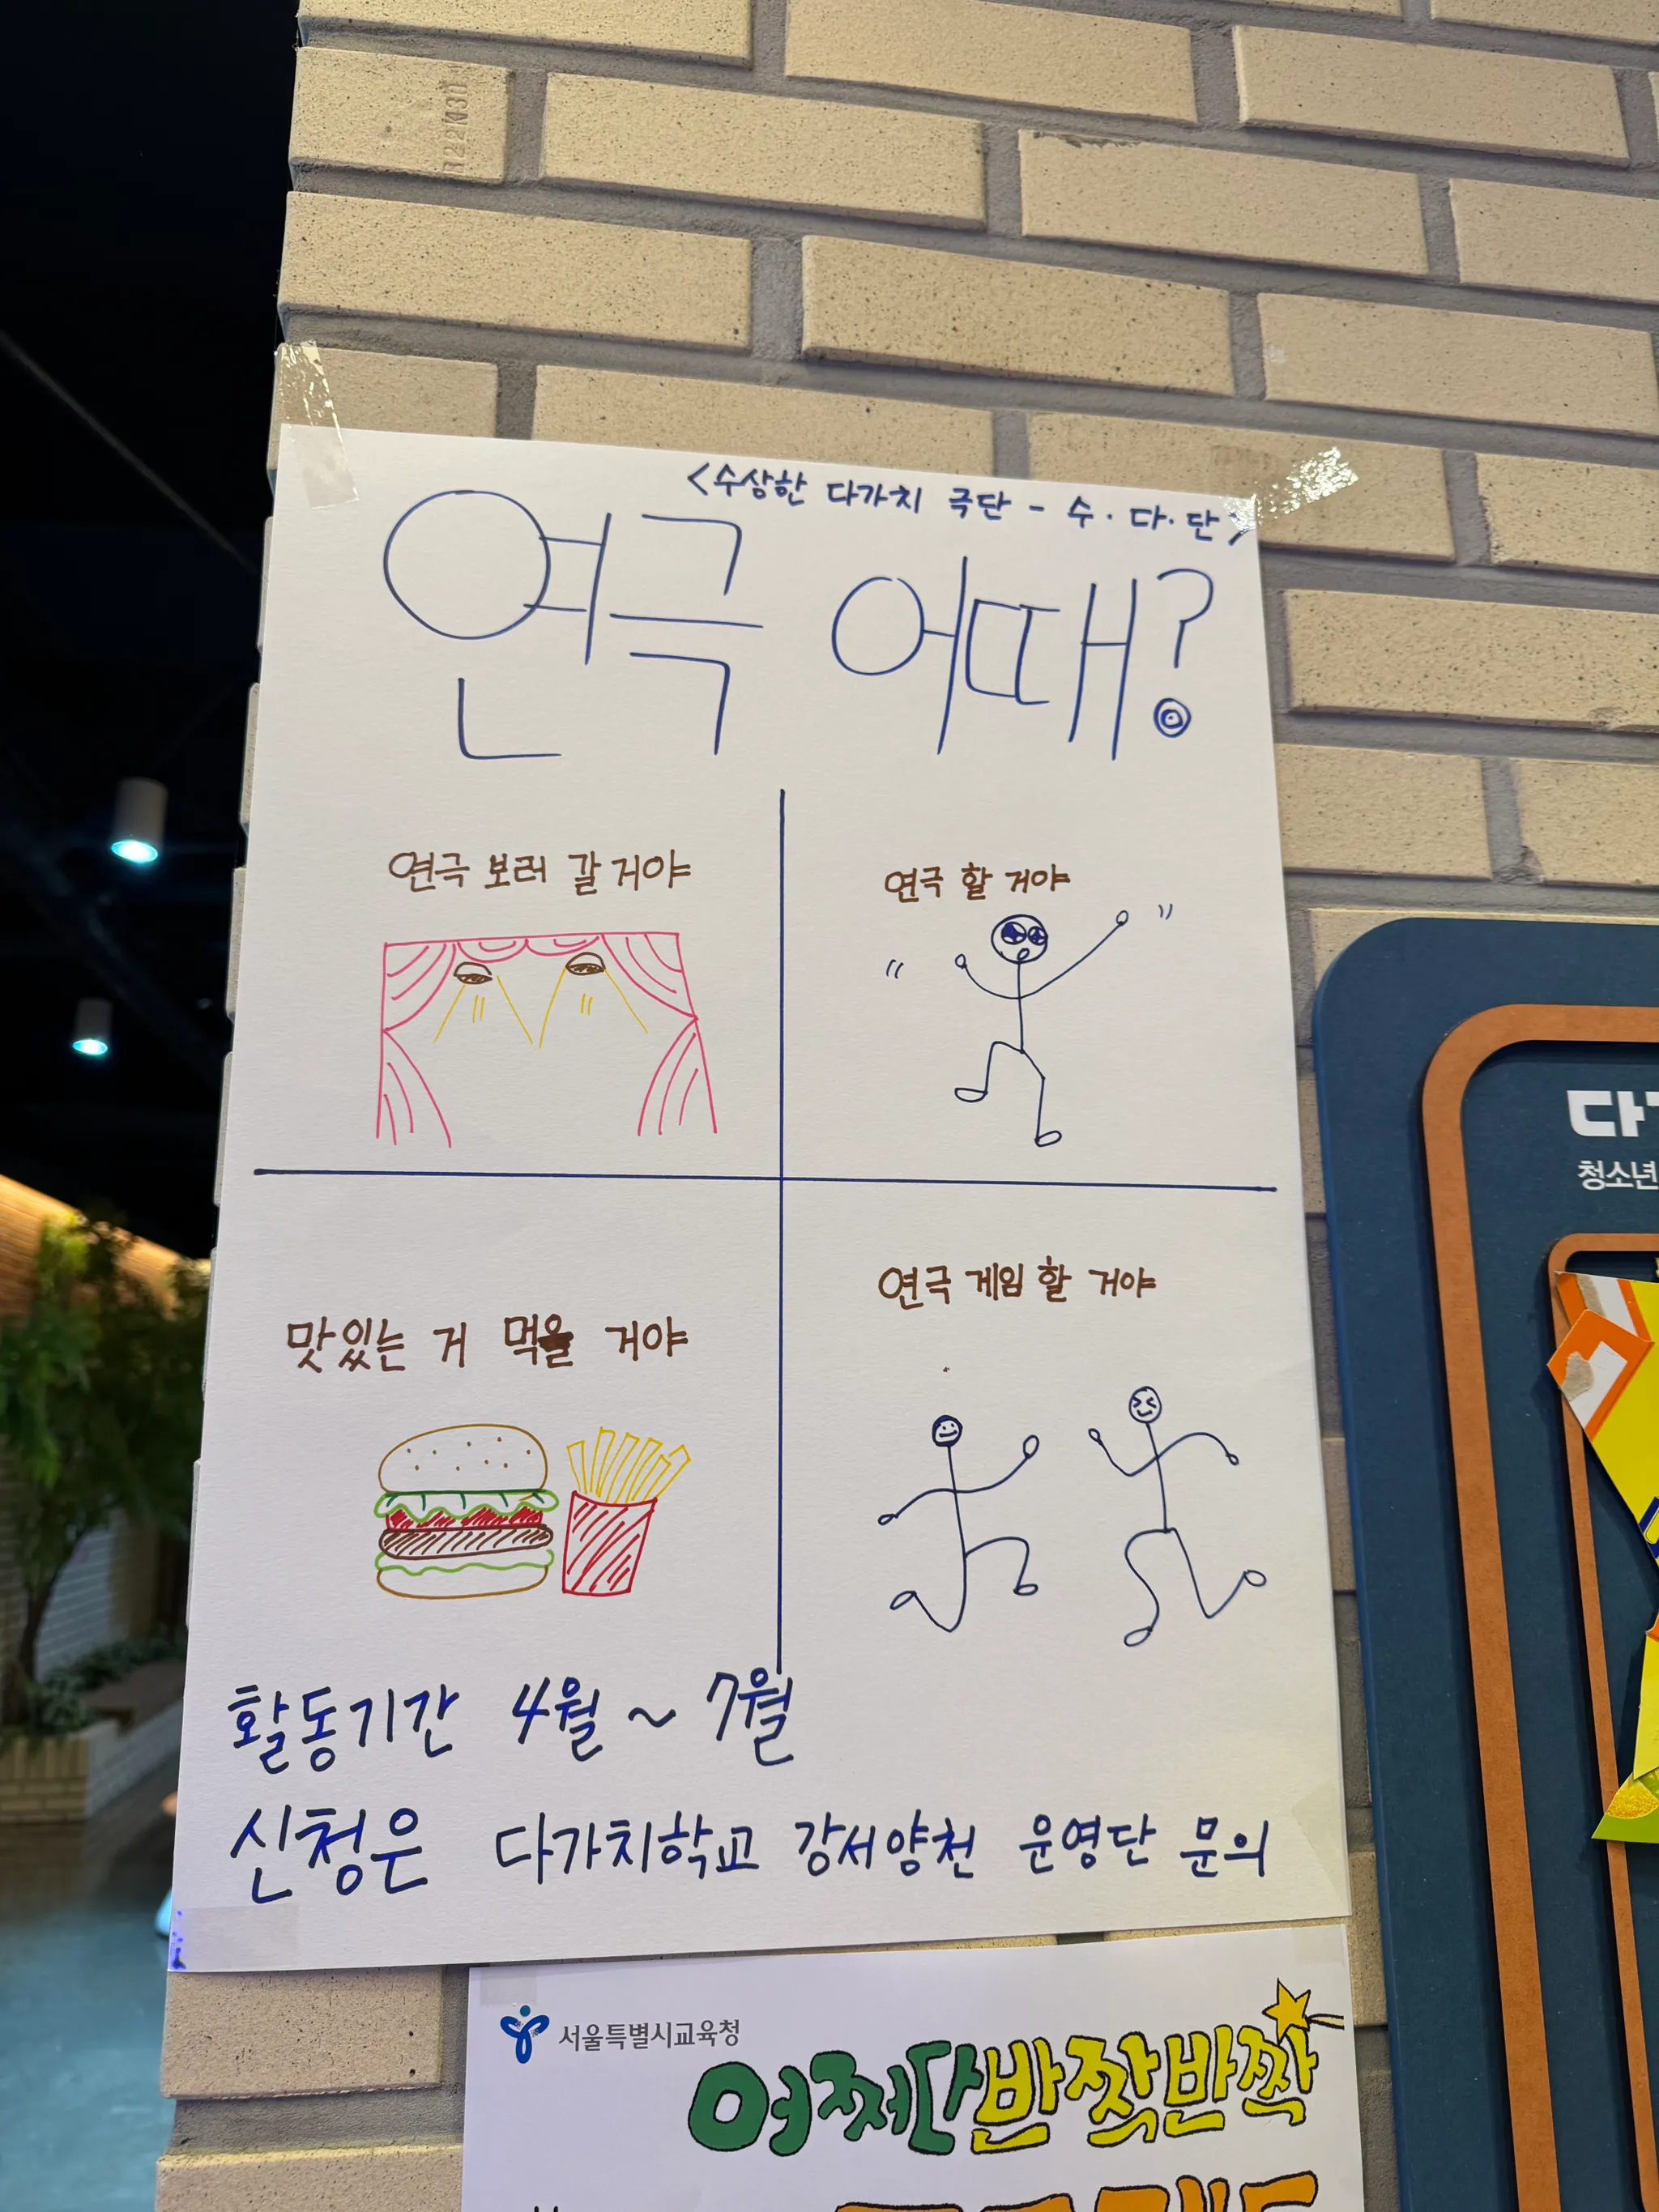 R22N30
<수상한 다가치 극단 - 수·다·단>
연극 어때?
연극 보러 갈 거야
연극 할 거야
맛있는 거 먹을 거야
연극 게임 할 거야
활동기간 4월 ~ 7월
신청은 다가치학교 강서양천 운영단 문의
청소년
서울특별시교육청
어쩌다반짝반짝